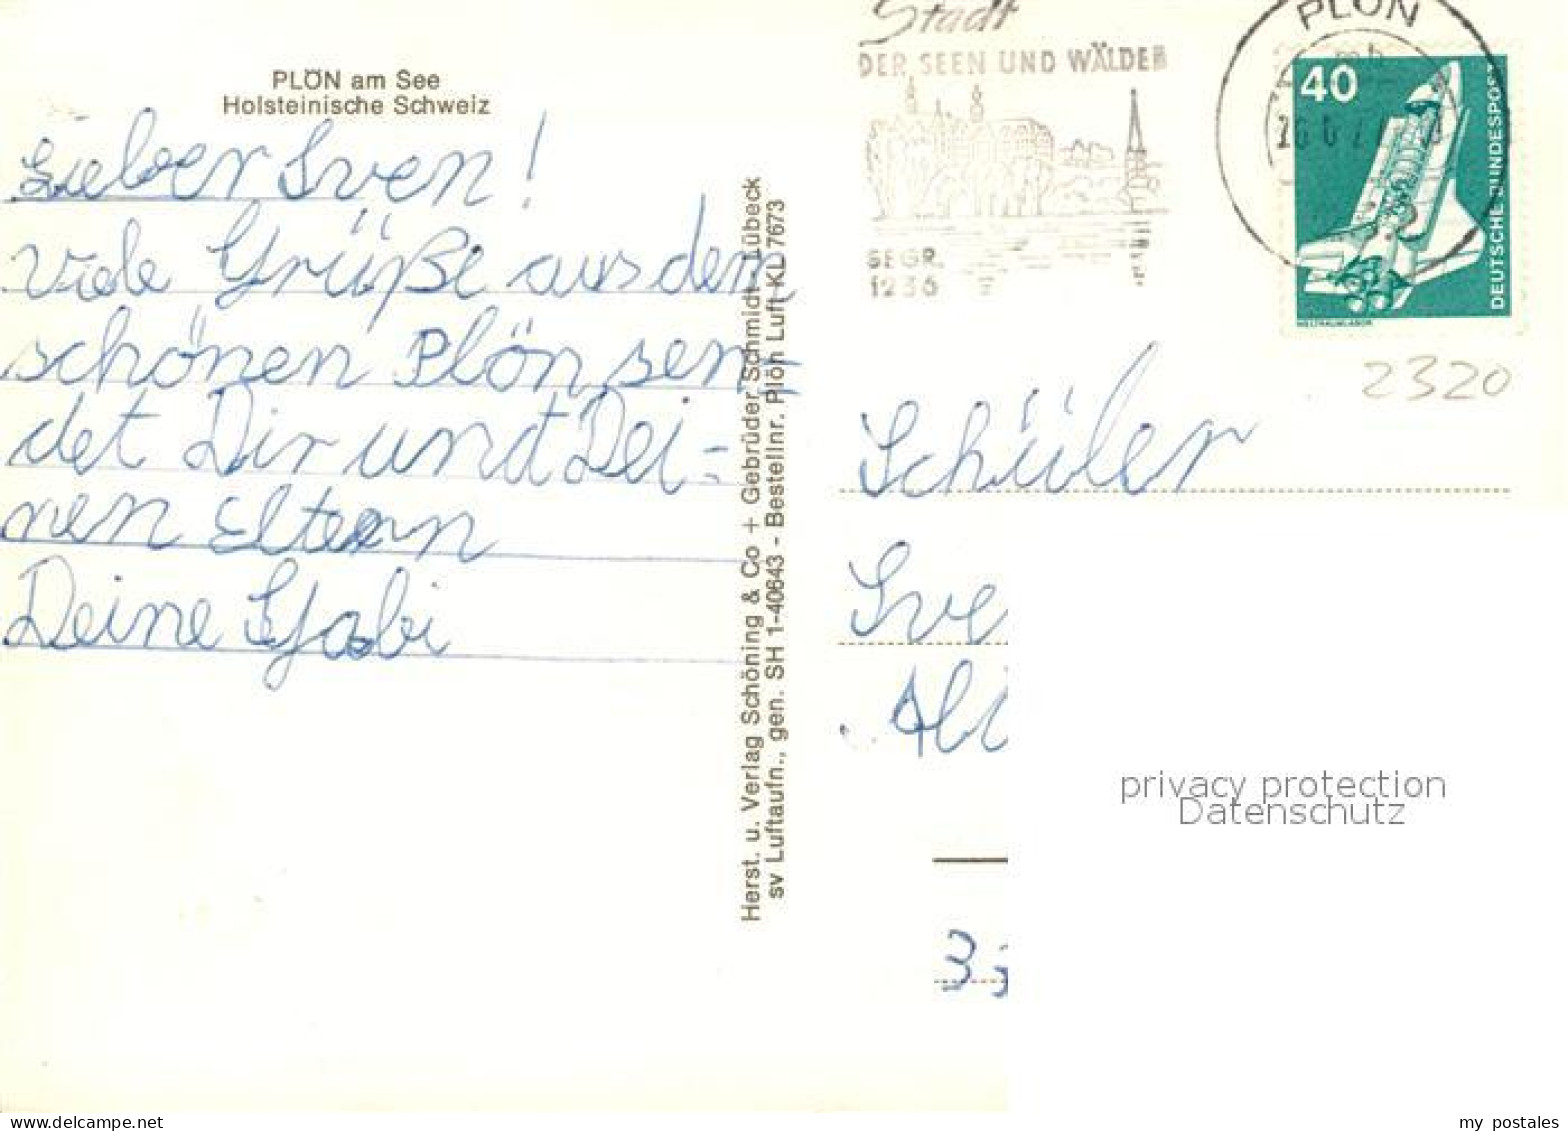 PLÖN am See
Holsteinische Schweiz
Lieber Sven!
viele Grüße aus dem
schönen Plön sen=
det Dir und Dei=
nen Eltern
Deine Gabi
Herst. u. Verlag Schöning & Co + Gebrüder Schmidt, Lübeck
sv Luftaufn., gen. SH 1-40643 - Bestellnr. Plön Luft KL 7673
Stadt
DER SEEN UND WÄLDER
GEGR.
1236
PLÖN
mb
40
DEUTSCHE BUNDESPOST
WELTRAUMLABOR
2320
Schüler
Sve
privacy protection
Datenschutz
my postales